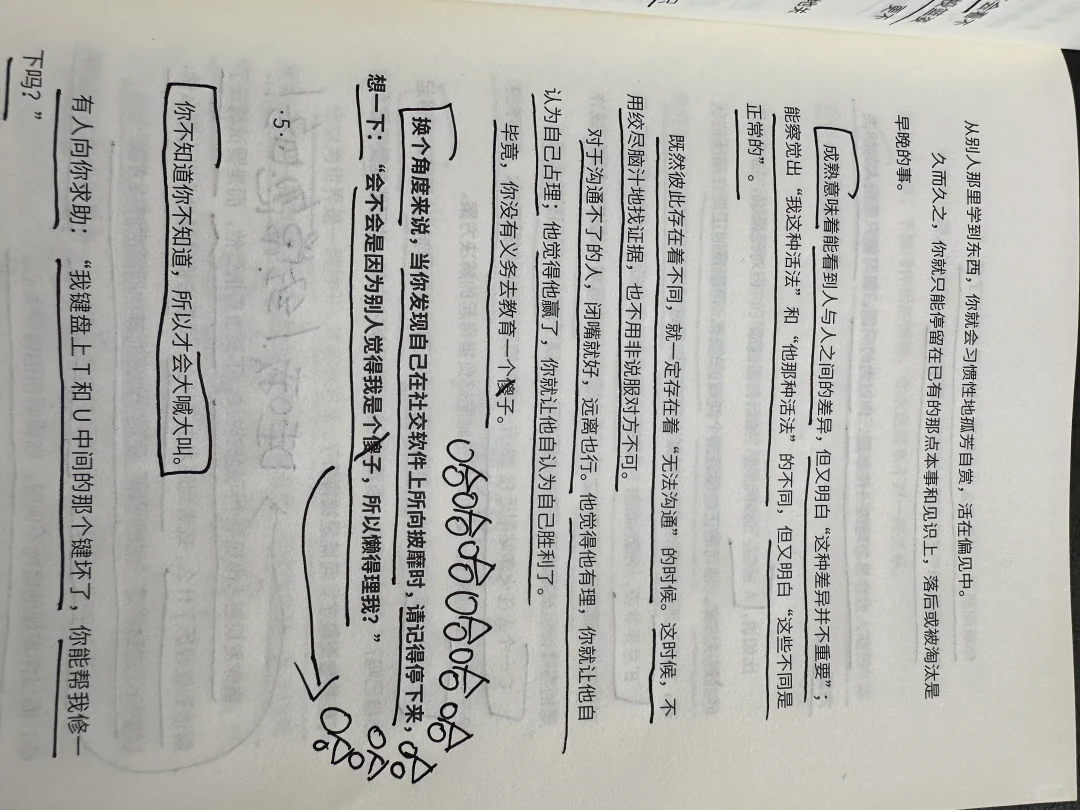 从别人那里学到东西，你就会习惯性地孤芳自赏，活在偏见中。
久而久之，你就只能停留在已有的那点本事和见识上，落后或被淘汰是
早晚的事。
成熟意味着能看到人与人之间的差异，但又明白“这种差异并不重要”；
能察觉出“我这种活法”和“他那种活法”的不同，但又明白“这些不同是
正常的”。
既然彼此存在着不同，就一定存在着“无法沟通”的时候。这时候，不
用绞尽脑汁地找证据，也不用非说服对方不可。
对于沟通不了的人，闭嘴就好，远离也行。他觉得他有理，你就让他自
认为自己占理；他觉得他赢了，你就让他自认为自己胜利了。
毕竟，你没有义务去教育一个傻子。
换个角度来说，当你发现自己在社交软件上所向披靡时，请记得停下来，
想一下：“会不会是因为别人觉得我是个傻子，所以懒得理我？”
·5·
你不知道你不知道，所以才会大喊大叫。
有人向你求助：“我键盘上 T 和 U 中间的那个键坏了，你能帮我修一
下吗？”